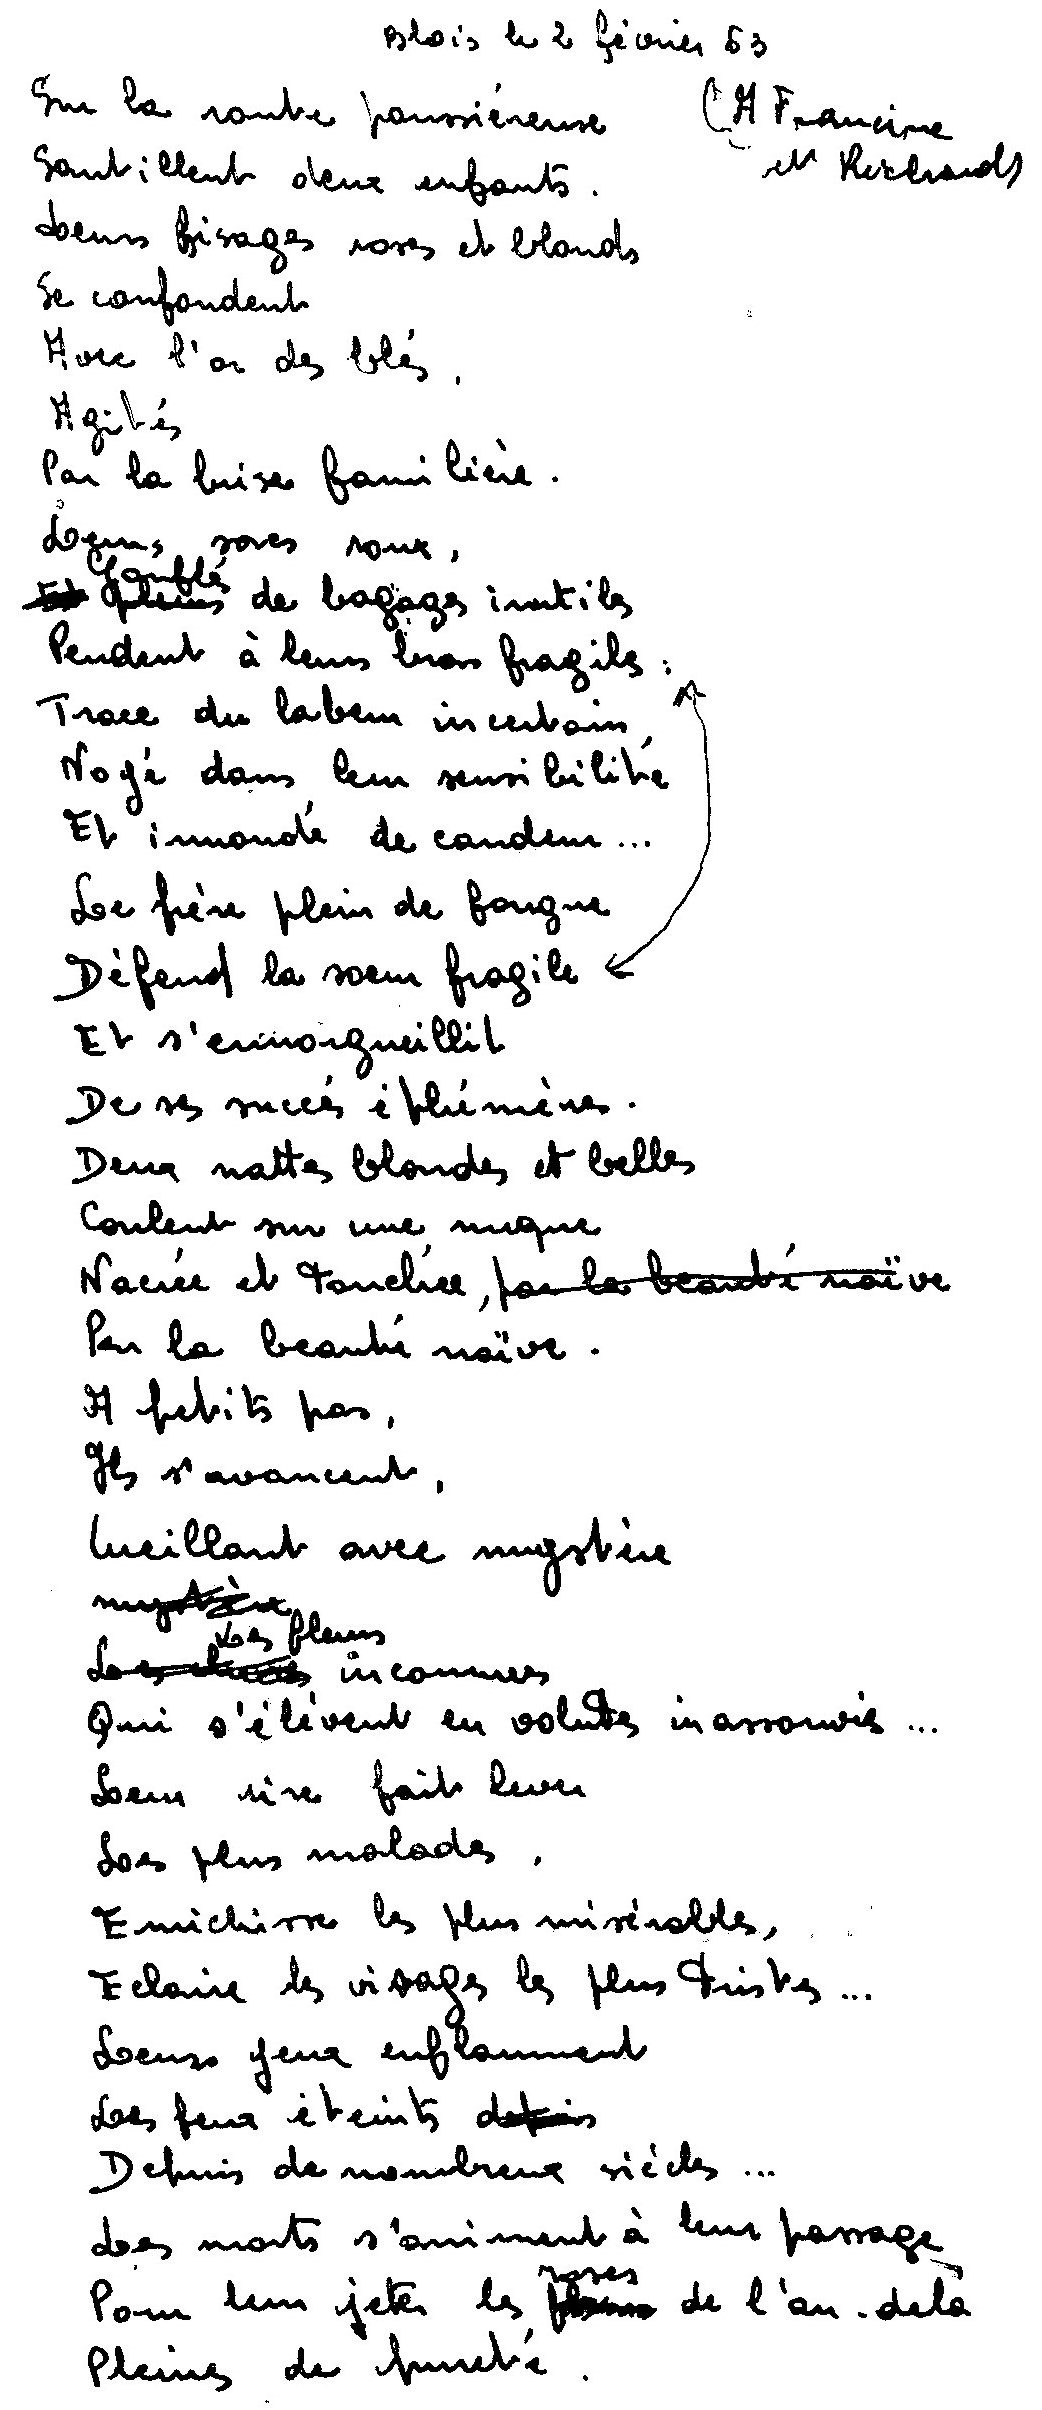 Blois le 2 février 63
Sur la route poussiéreuse
(A Francine
et Richard)
Sautillent deux enfants.
Leurs visages roses et blonds
Se confondent
Avec l'or des blés,
Agités
Par la brise familière.
Leurs sacs roux,
Gonflés
Et pleins de bagages inutiles
Pendent à leurs bras fragiles :
Trace du labeur incertain,
Noyé dans leur sensibilité
Et innondé de candeur...
Le frère plein de fougue
Défend la soeur fragile
Et s'ennorgueillit
De ses succés éphémères.
Deux nattes blondes et belles
Coulent sur une nuque
Nacrée et touchée, par la beauté naïve
Par la beauté naïve.
A petits pas,
Ils s'avancent,
Cueillant avec mystère
mystère
Les fleurs
Les inconnues
Qui s'élèvent en volutes inassouvies...
Leur rire fait lever
Les plus malades,
Enrichisse les plus misérables,
Eclaire les visages les plus tristes...
Leurs yeux enflamment
Les feux éteints depuis
Depuis de nombreux siècles...
Les morts s'animent à leur passage
roses
Pour leur jeter les fleurs de l'au-delà
Pleines de pureté.